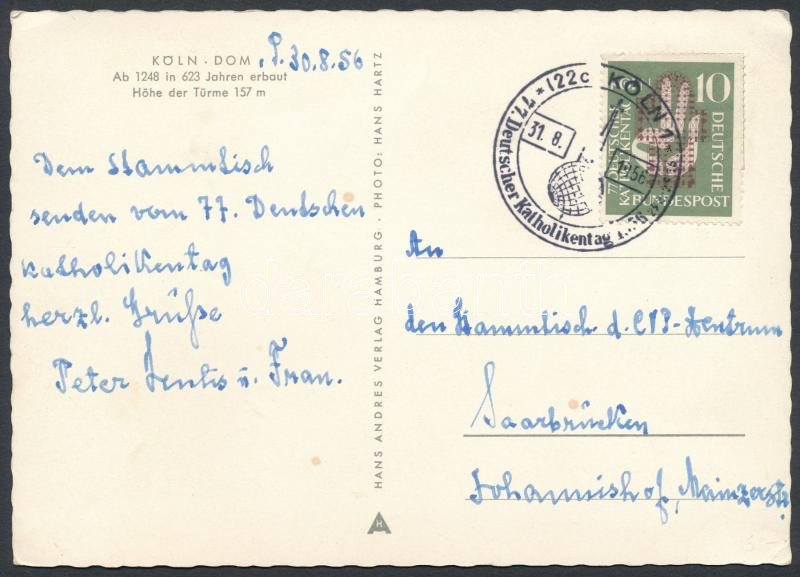 KÖLN · DOM
Ab 1248 in 623 Jahren erbaut
Höhe der Türme 157 m
30.8.56
Dem Stammtisch
senden vom 77. Deutschen
Katholikentag
herzl. Grüße
Peter u. Frau.
HANS ANDRES VERLAG HAMBURG · PHOTO: HANS HARTZ
H
* (22c) KÖLN 1 *
31. 8.
1956
77. Deutscher Katholikentag 1956
10
DEUTSCHE
BUNDESPOST
77. DEUTSCHER
KATHOLIKENTAG
An
den Stammtisch d. CVP-Zentrum
Saarbrücken
Johannishof, Mainzerstr.